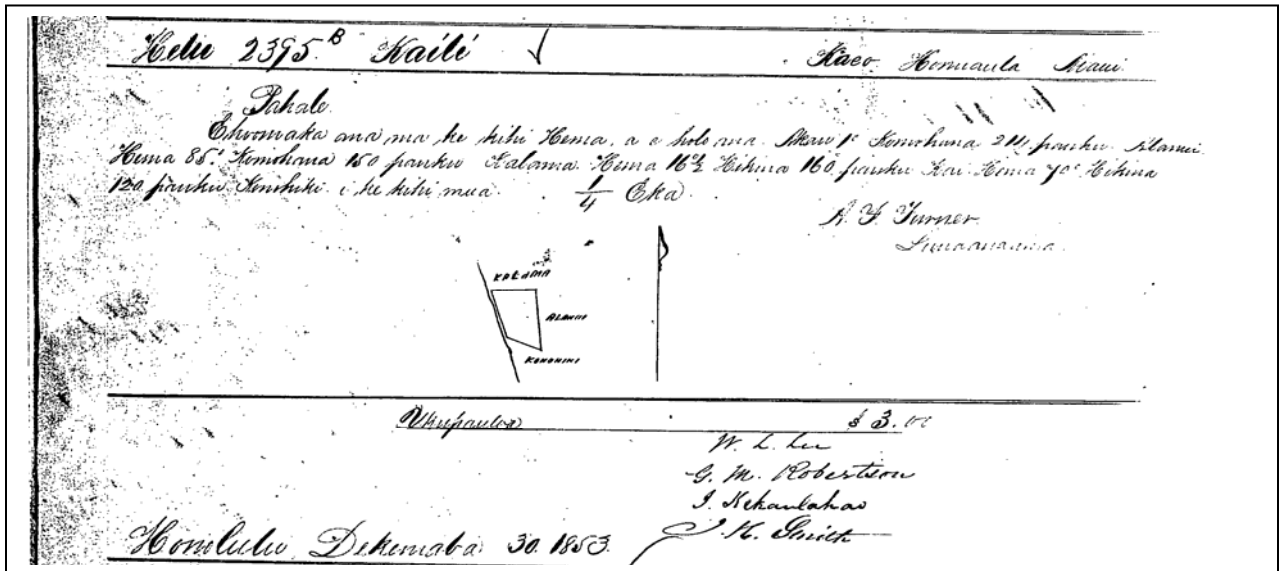 Helu 2395 B Kaili Kaeo Honuaula Maui
Pahale
E hoomaka ana ma ke kihi Hema, a e holo ana Akau 1° Komohana 214 pauku Alanui
Hema 85° Komohana 150 pauku Kalama. Hema 16½ Hikina 160 pauku Kai. Hema 70° Hikina
120 pauku Konohiki i ke kihi mua. 1/4 Eka.
A. F. Turner
KALAMA
ALANUI
KONOHIKI
Ukupauloa $ 3.00
W. L. Lee
G. M. Robertson
J. Kekaulahao
J. K. Smith
Honolulu Dekemaba 30. 1853.